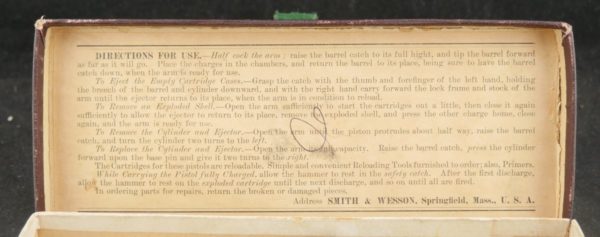 DIRECTIONS FOR USE.—Half cock the arm; raise the barrel catch to its full hight, and tip the barrel forward
as far as it will go. Place the charges in the chambers, and return the barrel to its place, being sure to have the barrel
catch down, when the arm is ready for use.
To Eject the Empty Cartridge Cases.—Grasp the catch with the thumb and forefinger of the left hand, holding
the breech of the barrel and cylinder downward, and with the right hand carry forward the lock frame and stock of the
arm until the ejector returns to its place, when the arm is in condition to reload.
To Remove an Exploded Shell.—Open the arm sufficiently to start the cartridges out a little, then close it again
sufficiently to allow the ejector to return to its place, remove the exploded shell, and press the other charge home, close
again, and the arm is ready for use.
To Remove the Cylinder and Ejector.—Open the arm until the piston protrudes about half way, raise the barrel
catch, and turn the cylinder two turns to the left.
To Replace the Cylinder and Ejector.—Open the arm its full capacity. Raise the barrel catch, press the cylinder
forward upon the base pin and give it two turns to the right.
The Cartridges for these pistols are reloadable. Simple and convenient Reloading Tools furnished to order; also, Primers.
While Carrying the Pistol fully Charged, allow the hammer to rest in the safety catch. After the first discharge,
allow the hammer to rest on the exploded cartridge until the next discharge, and so on until all are fired.
In ordering parts for repairs, return the broken or damaged pieces.
Address SMITH & WESSON, Springfield, Mass., U. S. A.